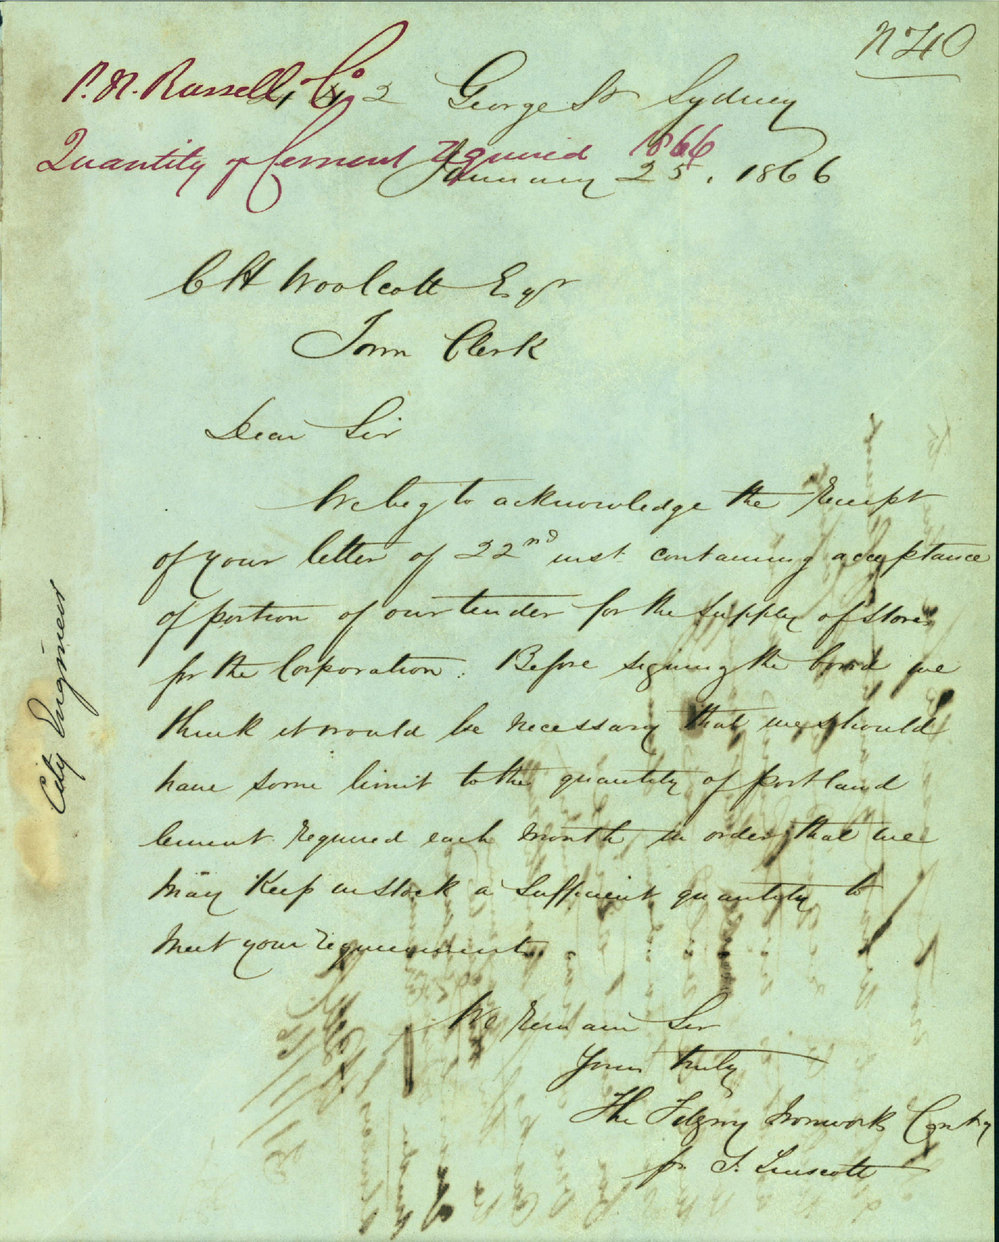 N 40
P. N. Russell & Co
442 George St Sydney
Quantity of Cement required 1866
January 25. 1866
C H Woolcott Esqr
Town Clerk
Dear Sir
We beg to acknowledge the Receipt
of your letter of 22nd inst containing acceptance
of portion of our tender for the supply of stores
for the Corporation. Before signing the bond we
think it would be necessary that we should
have some limit to the quantity of Portland
Cement required each month in order that we
may Keep in stock a sufficient quantity to
meet your requirements.
We Remain Sir
Yours truly
The Fitzroy Ironwork Company
for T. Linscott
City Engineer